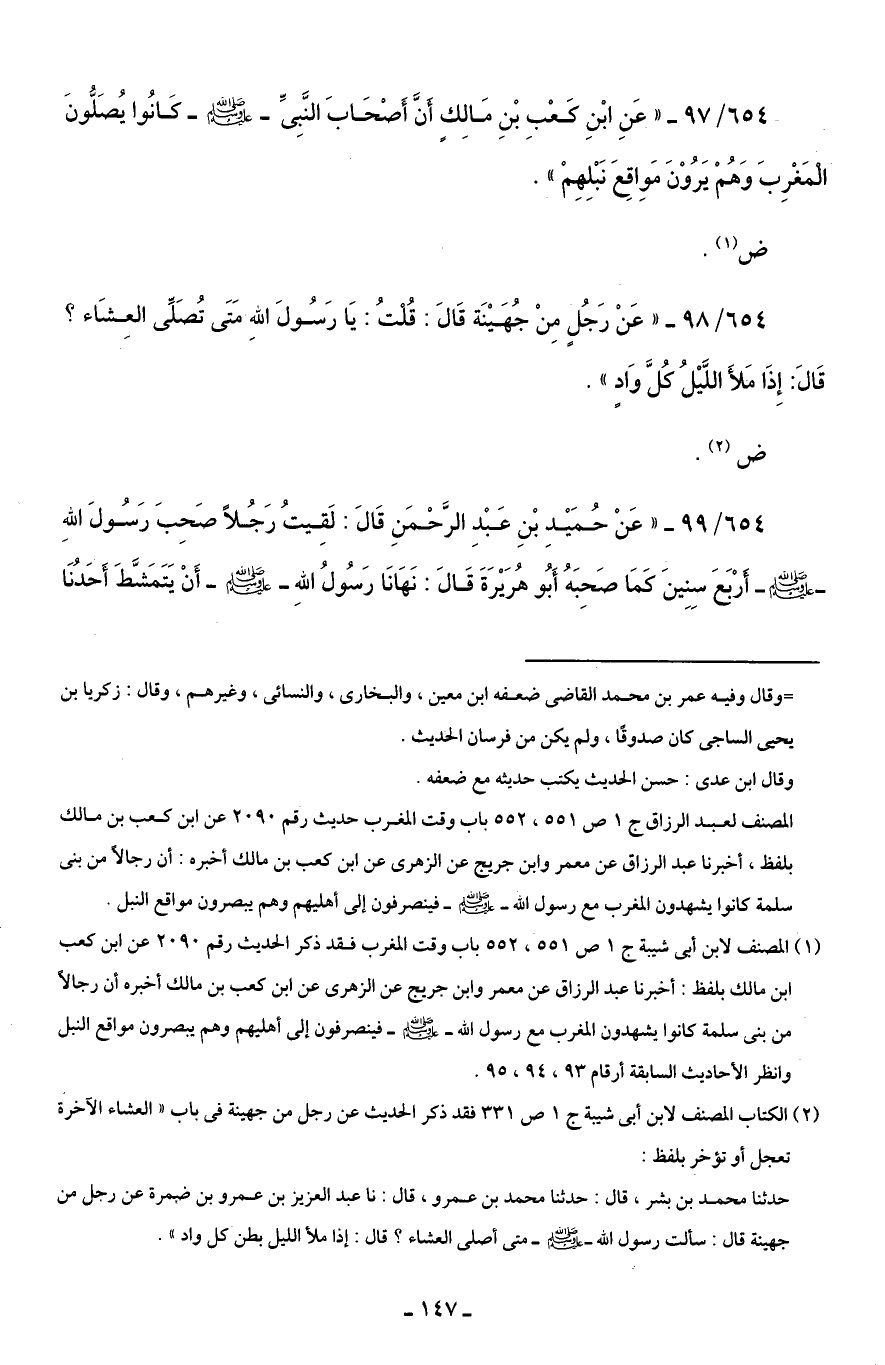 ٩٧/٦٥٤ ـ « عَنِ ابْنِ كَعْبِ بْنِ مَالِكٍ أَنَّ أَصْحَابَ النَّبِىِّ ـ ﷺ ـ كَانُوا يُصَلُّونَ
الْمَغْرِبَ وَهُمْ يَرَوْنَ مَوَاقِعَ نَبْلِهِمْ » .
ض(١) .
٩٨/٦٥٤ ـ « عَنْ رَجُلٍ مِنْ جُهَيْنَةَ قَالَ : قُلْتُ : يَا رَسُولَ اللهِ مَتَى تُصَلِّى العِشَاء ؟
قَالَ: إِذَا مَلأَ اللَّيْلُ كُلَّ وَادٍ » .
ض (٢) .
٩٩/٦٥٤ ـ « عَنْ حُمَيْدِ بْنِ عَبْدِ الرَّحْمَنِ قَالَ : لَقِيتُ رَجُلاً صَحِبَ رَسُولَ اللهِ
ـ ﷺ ـ أَرْبَعَ سِنِينَ كَمَا صَحِبَهُ أَبُو هُرَيْرَةَ قَالَ : نَهَانَا رَسُولُ اللهِ ـ ﷺ ـ أَنْ يَتَمَشَّطَ أَحَدُنَا
=وقال وفيه عمر بن محمد القاضى ضعفه ابن معين ، والبخارى ، والنسائى ، وغيرهم ، وقال : زكريا بن
يحيى الساجى كان صدوقًا ، ولم يكن من فرسان الحديث .
وقال ابن عدى : حسن الحديث يكتب حديثه مع ضعفه .
المصنف لعبد الرزاق ج ١ ص ٥٥١ ، ٥٥٢ باب وقت المغرب حديث رقم ٢٠٩٠ عن ابن كعب بن مالك
بلفظ ، أخبرنا عبد الرزاق عن معمر وابن جريج عن الزهرى عن ابن كعب بن مالك أخبره : أن رجالاً من بنى
سلمة كانوا يشهدون المغرب مع رسول الله ـ ﷺ ـ فينصرفون إلى أهليهم وهم يبصرون مواقع النبل .
(١) المصنف لابن أبى شيبة ج ١ ص ٥٥١ ، ٥٥٢ باب وقت المغرب فقد ذكر الحديث رقم ٢٠٩٠ عن ابن كعب
ابن مالك بلفظ : أخبرنا عبد الرزاق عن معمر وابن جريج عن الزهرى عن ابن كعب بن مالك أخبره أن رجالاً
من بنى سلمة كانوا يشهدون المغرب مع رسول الله ـ ﷺ ـ فينصرفون إلى أهليهم وهم يبصرون مواقع النبل
وانظر الأحاديث السابقة أرقام ٩٣ ، ٩٤ ، ٩٥ .
(٢) الكتاب المصنف لابن أبى شيبة ج ١ ص ٣٣١ فقد ذكر الحديث عن رجل من جهينة فى باب « العشاء الآخرة
تعجل أو تؤخر بلفظ :
حدثنا محمد بن بشر ، قال : حدثنا محمد بن عمرو ، قال : نا عبد العزيز بن عمرو بن ضمرة عن رجل من
جهينة قال : سألت رسول الله ـ ﷺ ـ متى أصلى العشاء ؟ قال : إذا ملأ الليل بطن كل واد » .
ـ ١٤٧ ـ